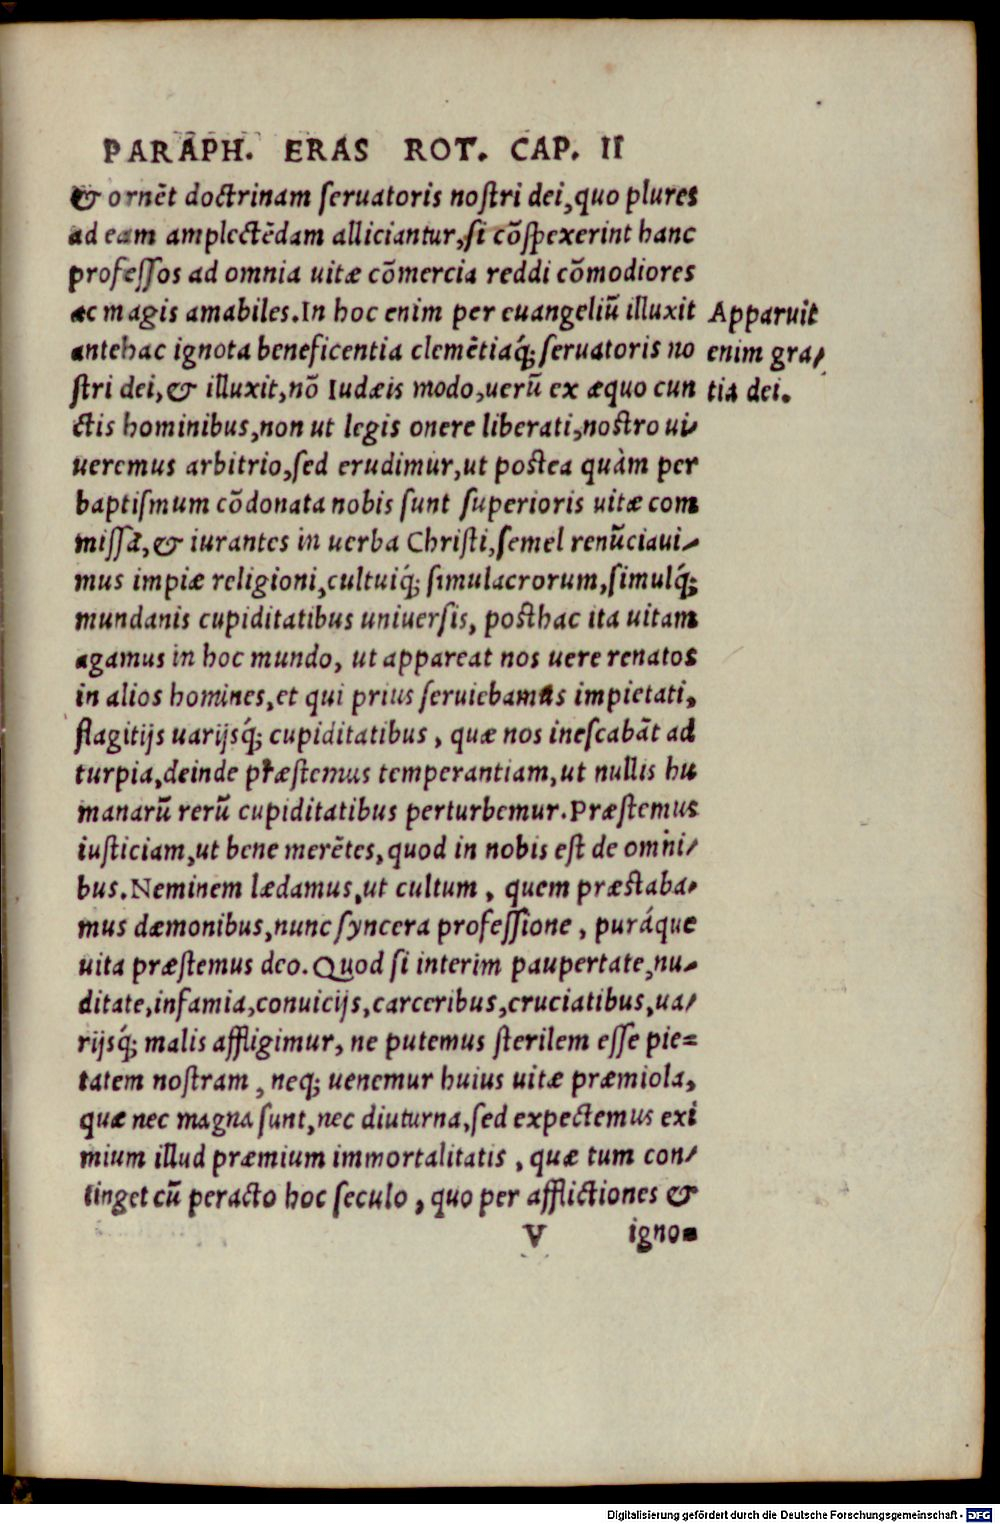 PARAPH. ERAS ROT. CAP. II
& ornẽt doctrinam ſeruatoris noſtri dei, quo plures
ad eam amplectẽdam alliciantur, ſi cõſpexerint hanc
profeſſos ad omnia uitæ cõmercia reddi cõmodiores
ac magis amabiles. In hoc enim per euangeliũ illuxit
antehac ignota beneficentia clemẽtiaq́; ſeruatoris no
ſtri dei, & illuxit, nõ Iudæis modo, uerũ ex æquo cun
ctis hominibus, non ut legis onere liberati, noſtro ui-
ueremus arbitrio, ſed erudimur, ut poſtea quàm per
baptiſmum cõdonata nobis ſunt ſuperioris uitæ com
miſſa, & iurantes in uerba Chriſti, ſemel renũciaui-
mus impiæ religioni, cultuiq́; ſimulacrorum, ſimulq́;
mundanis cupiditatibus uniuerſis, poſthac ita uitam
agamus in hoc mundo, ut appareat nos uere renatos
in alios homines, et qui prius ſeruiebamus impietati,
flagitijs uarijsq́; cupiditatibus, quæ nos ineſcabãt ad
turpia, deinde præſtemus temperantiam, ut nullis hu
manarũ rerũ cupiditatibus perturbemur. Præſtemus
iuſticiam, ut bene merẽtes, quod in nobis eſt de omni-
bus. Neminem lædamus, ut cultum, quem præſtaba-
mus dæmonibus, nunc ſyncera profeſſione, puráque
uita præſtemus deo. Quod ſi interim paupertate, nu-
ditate, infamia, conuicijs, carceribus, cruciatibus, ua-
rijsq́; malis affligimur, ne putemus ſterilem eſſe pie=
tatem noſtram, neq; uenemur huius uitæ præmiola,
quæ nec magna ſunt, nec diuturna, ſed expectemus exi
mium illud præmium immortalitatis, quæ tum con-
tinget cũ peracto hoc ſeculo, quo per afflictiones &
V igno=
Apparuit
enim gra-
tia dei.
Digitalisierung gefördert durch die Deutsche Forschungsgemeinschaft - DFG